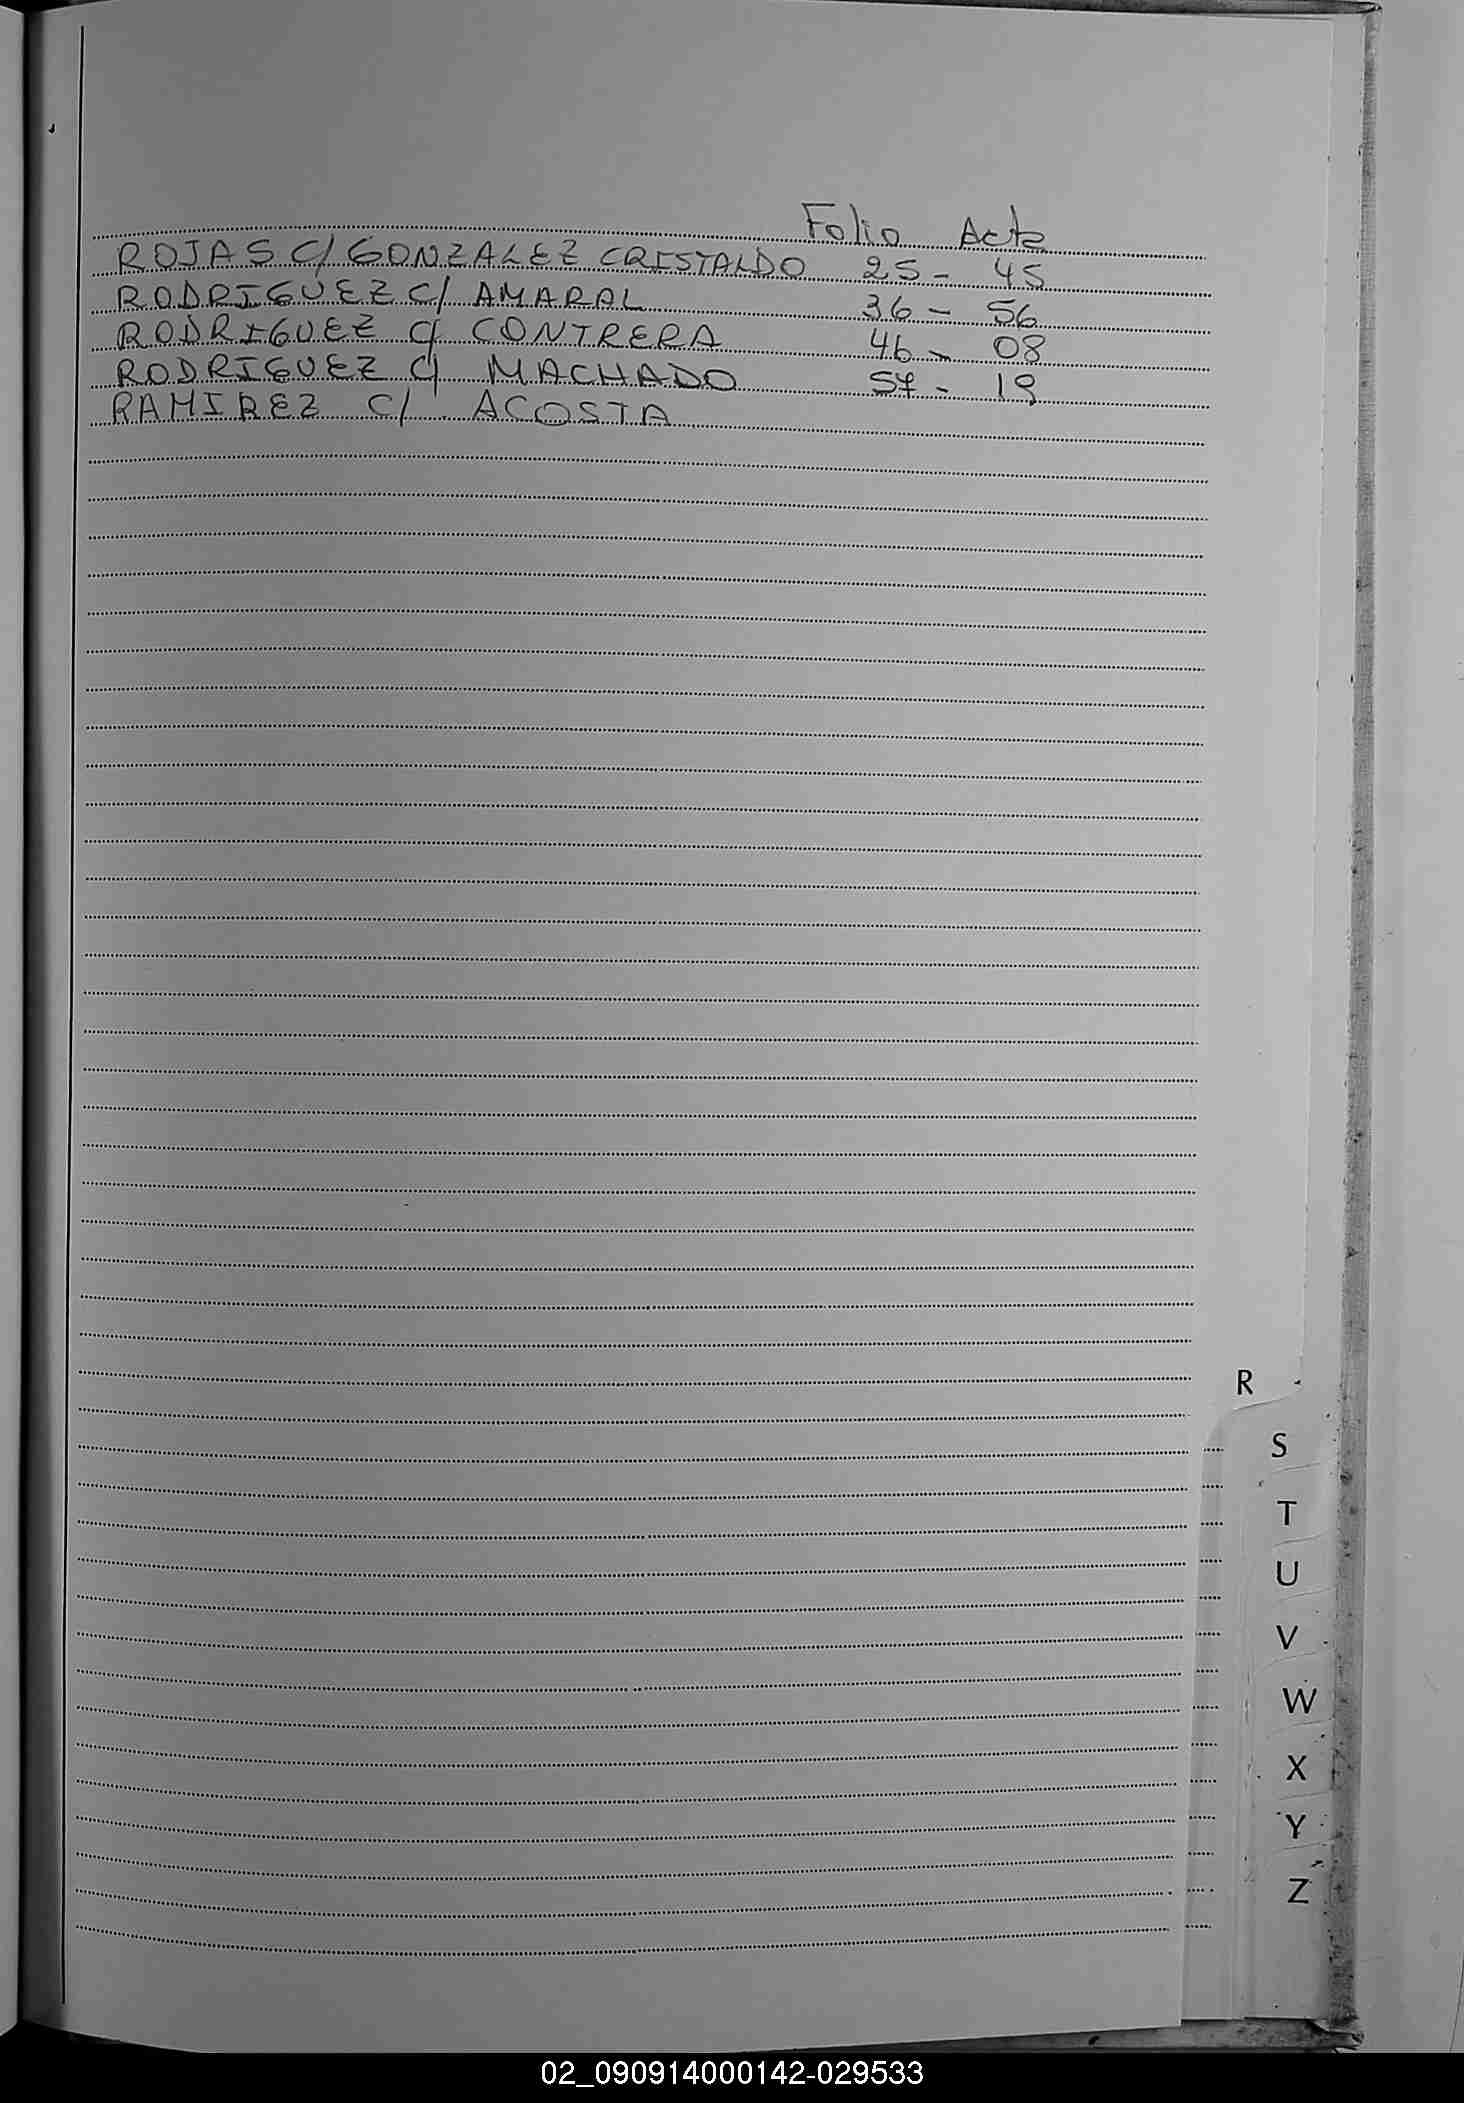 Folio Acta
ROJAS C/ GONZALEZ CRISTALDO 25 - 45
RODRIGUEZ C/ AMARAL 36 - 56
RODRIGUEZ C/ CONTRERA 46 - 08
RODRIGUEZ C/ MACHADO 57 - 19
RAMIREZ C/ ACOSTA
R
S
T
U
V
W
X
Y
Z
02_090914000142-029533